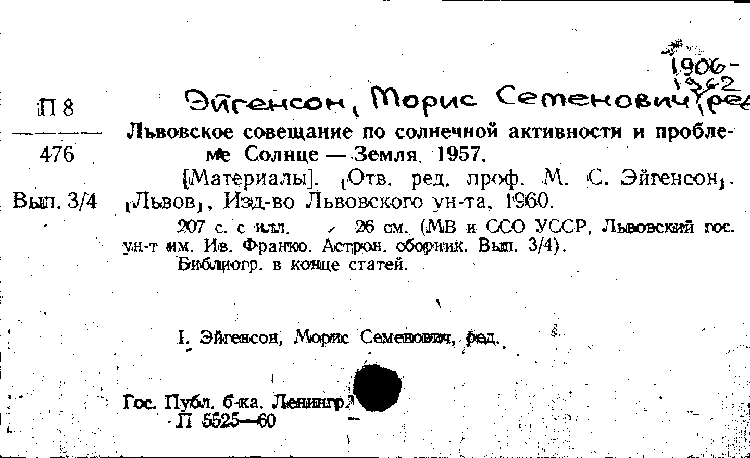 1906-
1962
П 8 Эйгенсон, Морис Семенович, ред
Львовское совещание по солнечной активности и пробле-
476 ме Солнце — Земля. 1957.
[Материалы]. [Отв. ред. проф. М. С. Эйгенсон].
Вып. 3/4 [Львов], Изд-во Львовского ун-та, 1960.
207 с. с илл. 26 см. (МВ и ССО УССР, Львовский гос.
ун-т им. Ив. Франко. Астрон. сборник. Вып. 3/4).
Библиогр. в конце статей.
I. Эйгенсон, Морис Семенович, ред.
Гос. Публ. б-ка. Ленингр.
П 5525—60